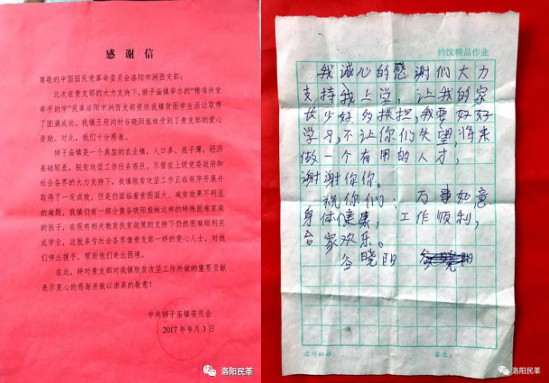 感谢信
尊敬的中国国民党革命委员会洛阳市涧西支部：
此次在贵支部的大力支持下，狮子庙镇举办的“精准扶贫
牵手助学”民革洛阳市涧西支部资助我镇贫困学生活动取得
了圆满成功，我镇王府沟村谷晓阳能够受到了贵支部的爱心
资助。对此，我们十分感谢。
狮子庙镇是一个典型的农业镇，人口多、底子薄、经济
基础较差，脱贫攻坚工作任务艰巨，尽管在上级党委政府和
社会各界的大力支持下，我镇脱贫攻坚工作正在有序开展并
取得了一定成效，但是仍面临着贫困面大、减贫效果不明显
的难题，我镇仍有一部分像谷晓阳酱这样的特殊困难家庭
的孩子，在现有相关教育扶贫政策的支持下仍然很难顺利完
成学业，这就多亏社会各界像贵支部一样的爱心人士，对他
们伸出援手，帮助他们走出困境。
在此，将对贵支部对我镇脱贫攻坚工作所做的重要贡献
表示衷心的感谢并致以崇高的敬意！
中共狮子庙镇委员会
2017年9月3日
洛阳民革
约汉精品作业
我诚心的感谢们大力
支持我上学，让我的家
长少好多操担，我要好好
学习，不让你们失望，将来
做一个有用的人才，
谢谢你们。
祝你们：万事如意
身体健康，工作顺利，
合家欢乐。
谷晓阳
洛阳民革